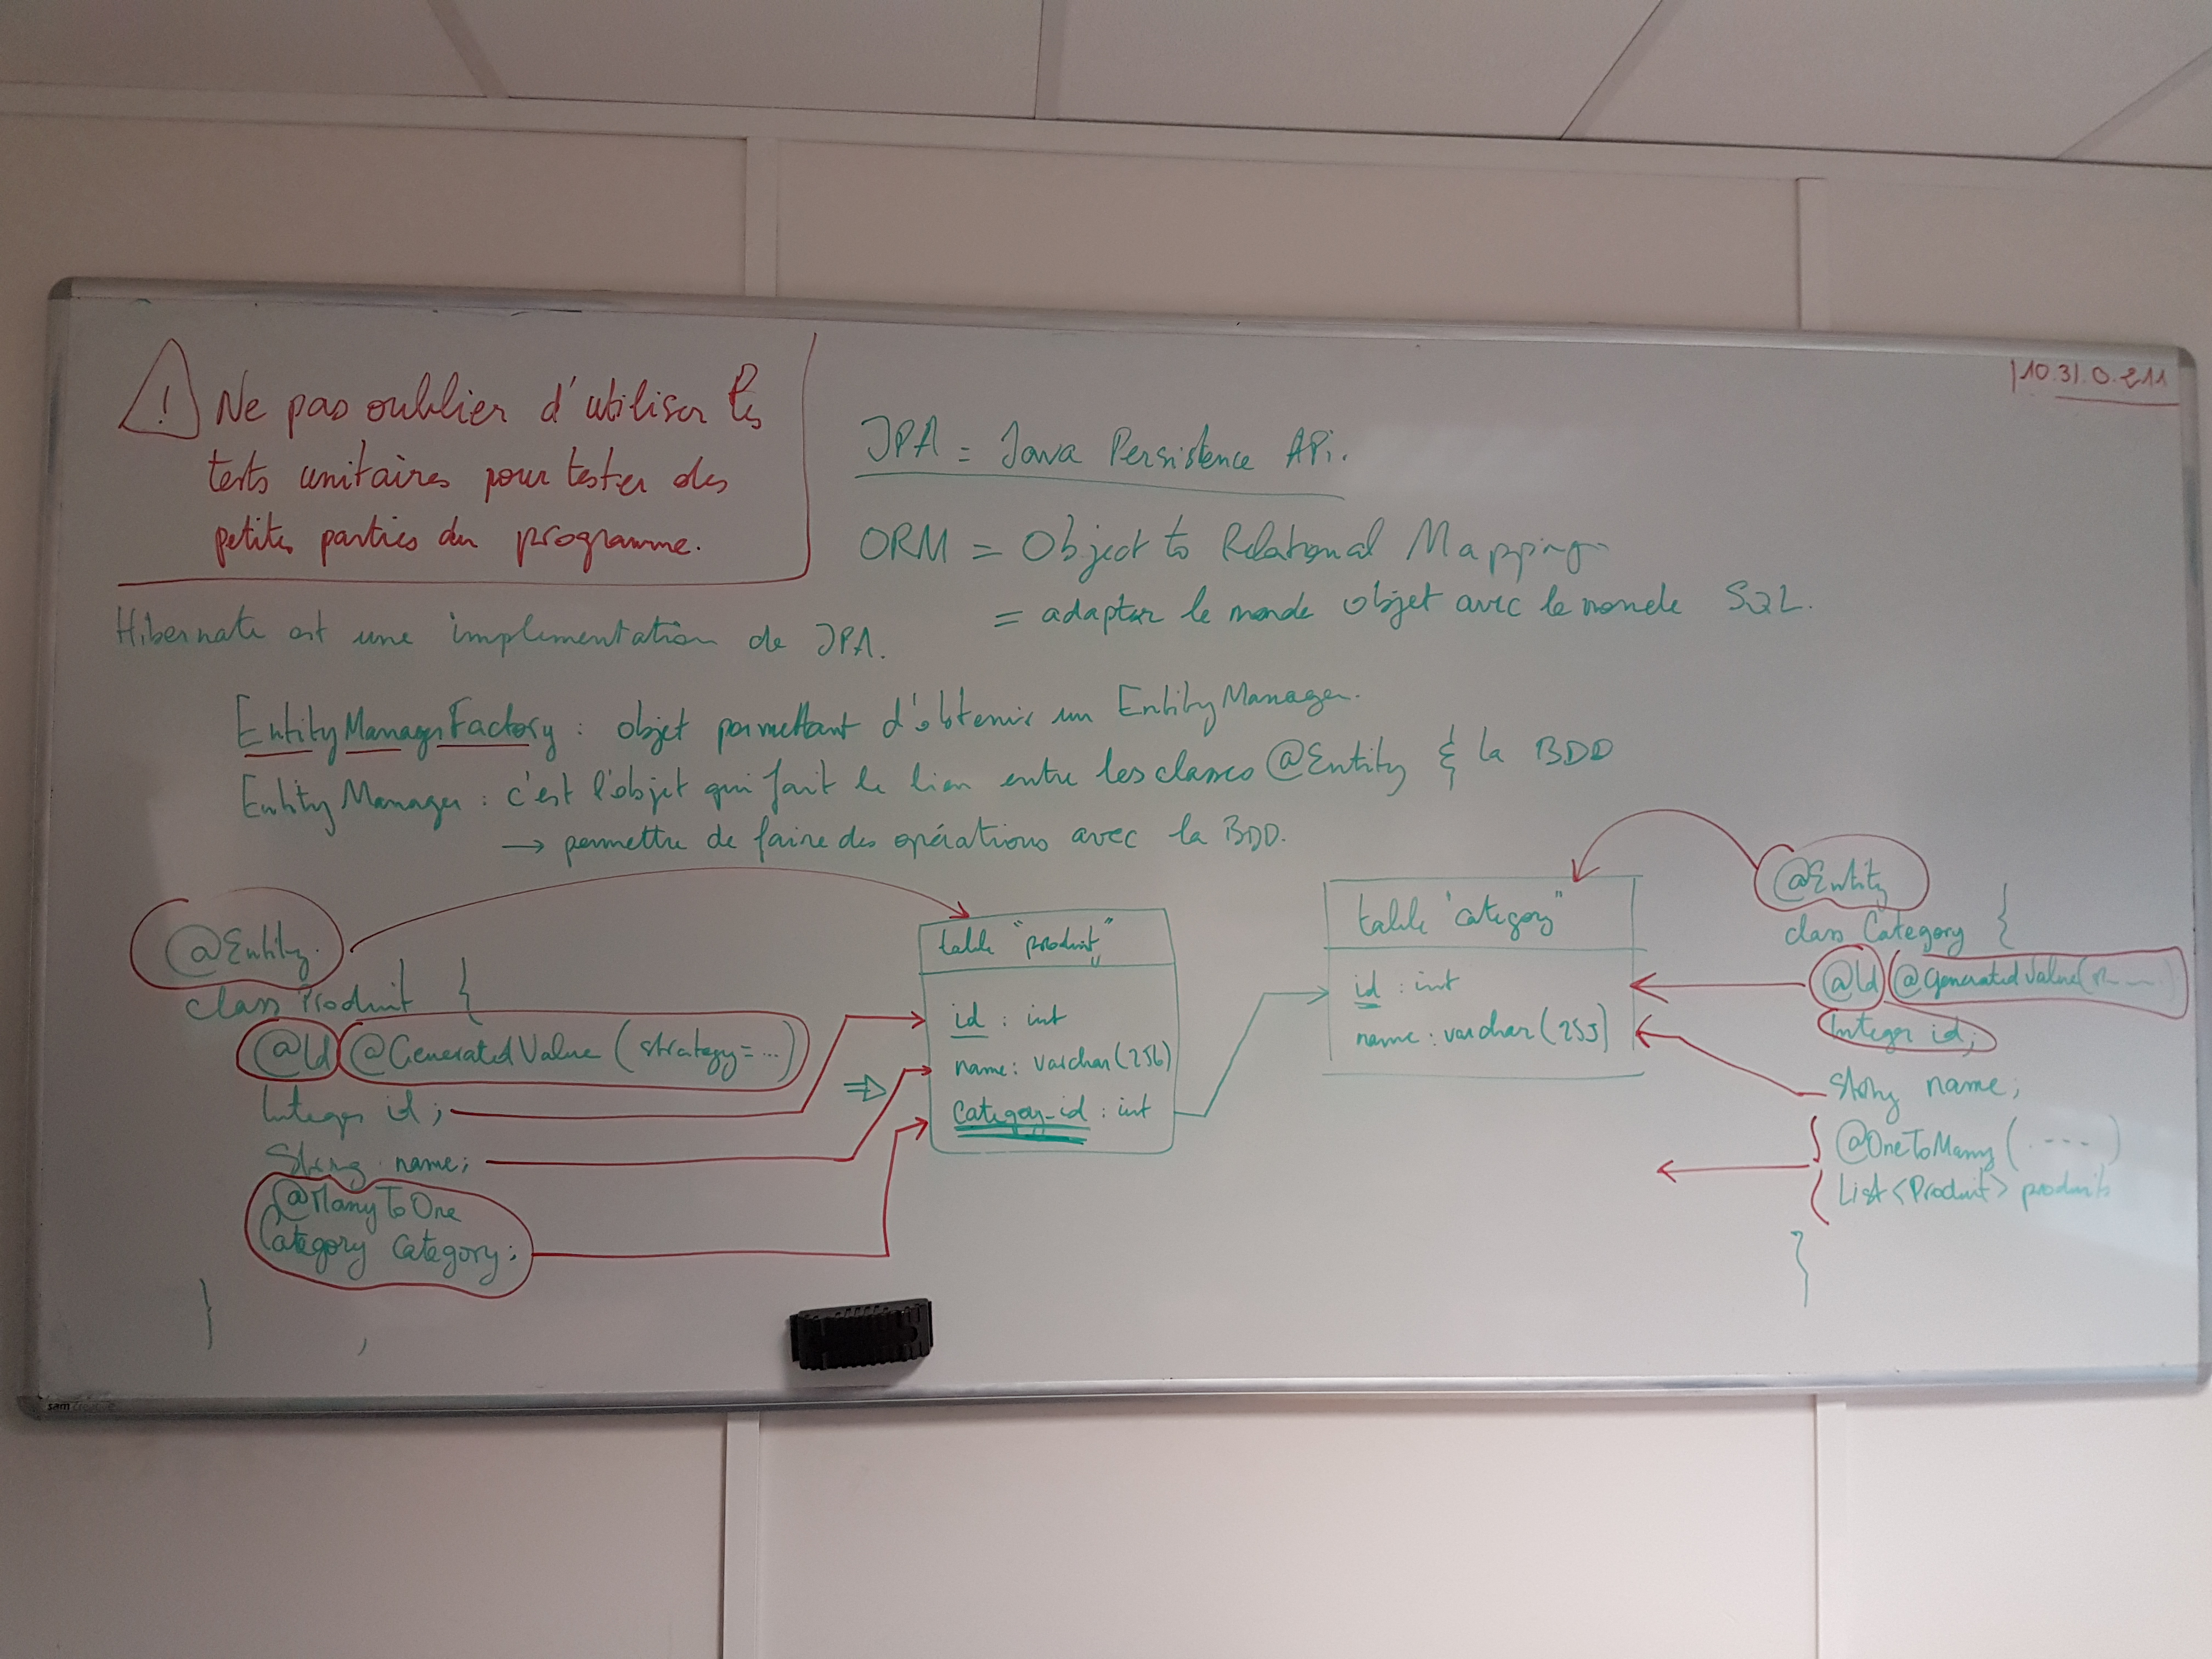 ! Ne pas oublier d'utiliser les
tests unitaires pour tester des
petites parties du programme.
10.31.0.211
JPA = Java Persistence APi.
ORM = Object to Relational Mapping
= adapter le monde objet avec le monde SQL.
Hibernate est une implementation de JPA.
EntityManagerFactory : objet permettant d'obtenir un EntityManager.
EntityManager : c'est l'objet qui fait le lien entre les classes @Entity & la BDD
→ permettre de faire des opérations avec la BDD.
@Entity
class Produit {
@Id @GeneratedValue (strategy=...)
Integer id;
String name;
@ManyToOne
Category Category;
}
table "produit"
id : int
name : varchar(256)
Category_id : int
table "category"
id : int
name : varchar(255)
@Entity
class Category {
@Id @GeneratedValue(
Integer id;
String name;
@OneToMany(----)
List<Produit> produits
}
sam